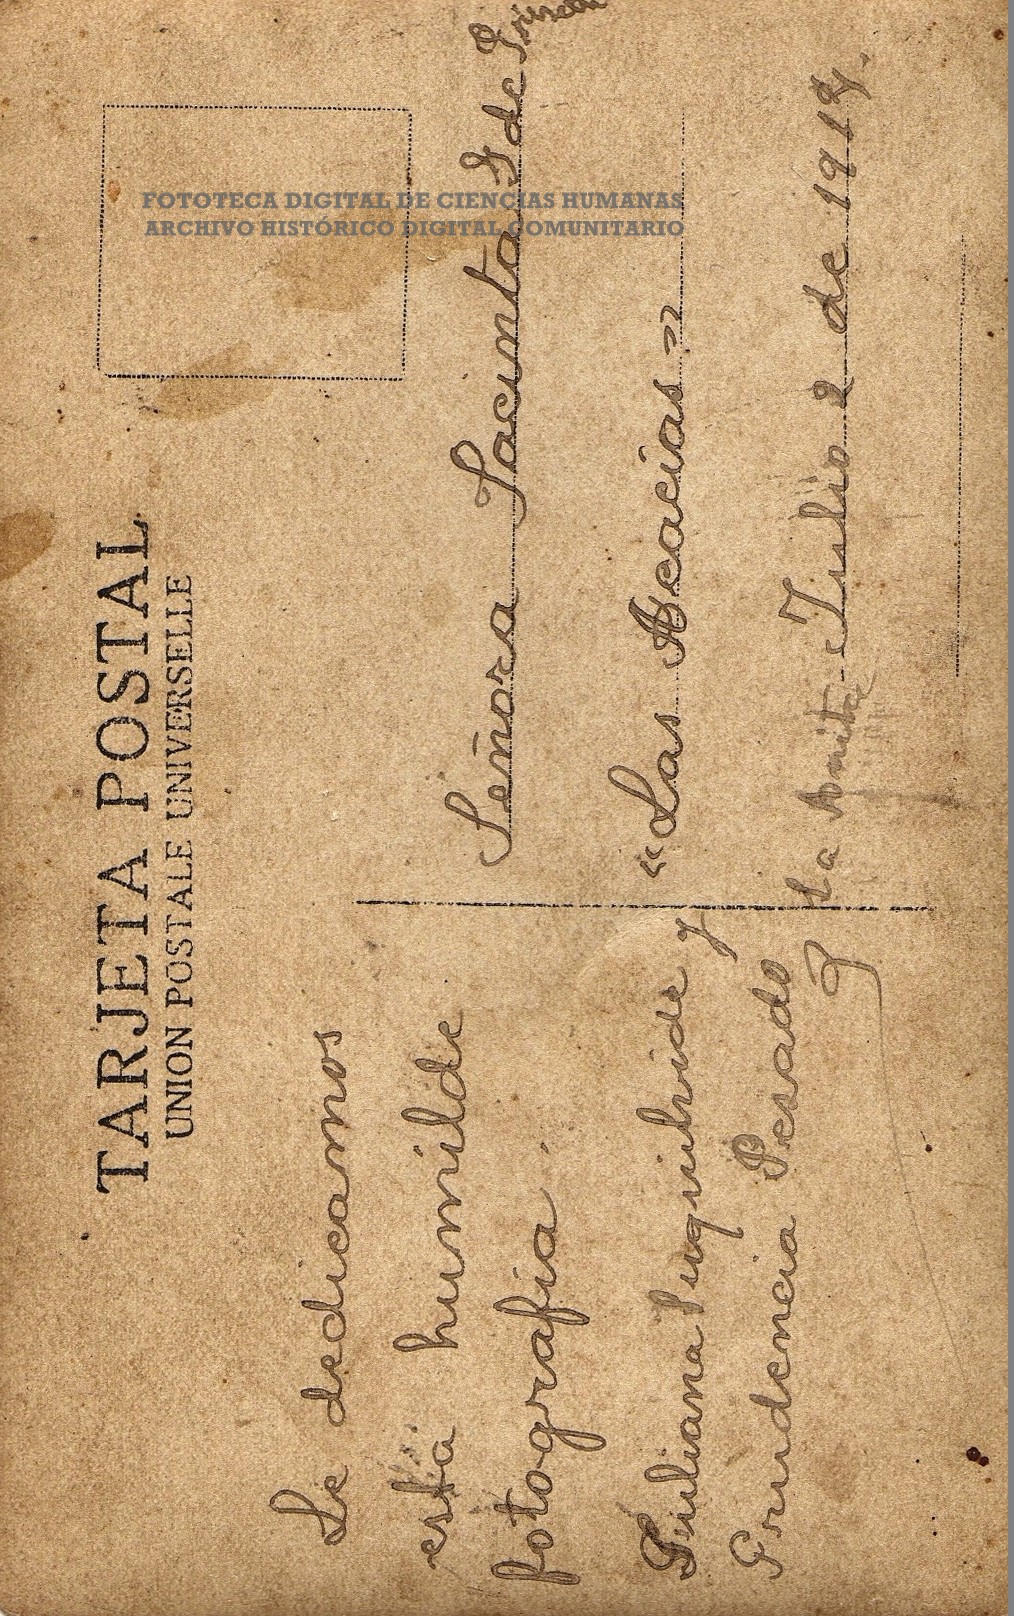 FOTOTECA DIGITAL DE CIENCIAS HUMANAS
ARCHIVO HISTÓRICO DIGITAL COMUNITARIO
TARJETA POSTAL
UNION POSTALE UNIVERSELLE
Le dedicamos
esta humilde
fotografia.
Juliana Suquilvide y
Prudencia Pesado
Señora Jacinta G de
"Las Acacias"
Julio 2 de 191
y la Anita